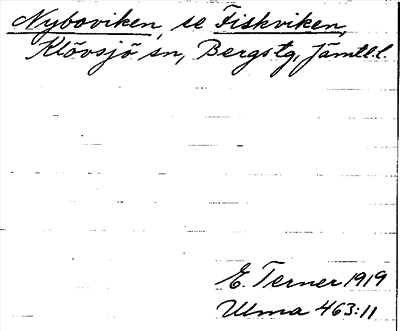 Nyboviken, se Fiskviken,
Klövsjö sn, Bergs tg, Jämtl. l.
E. Terner 1919
Ulma 463:11